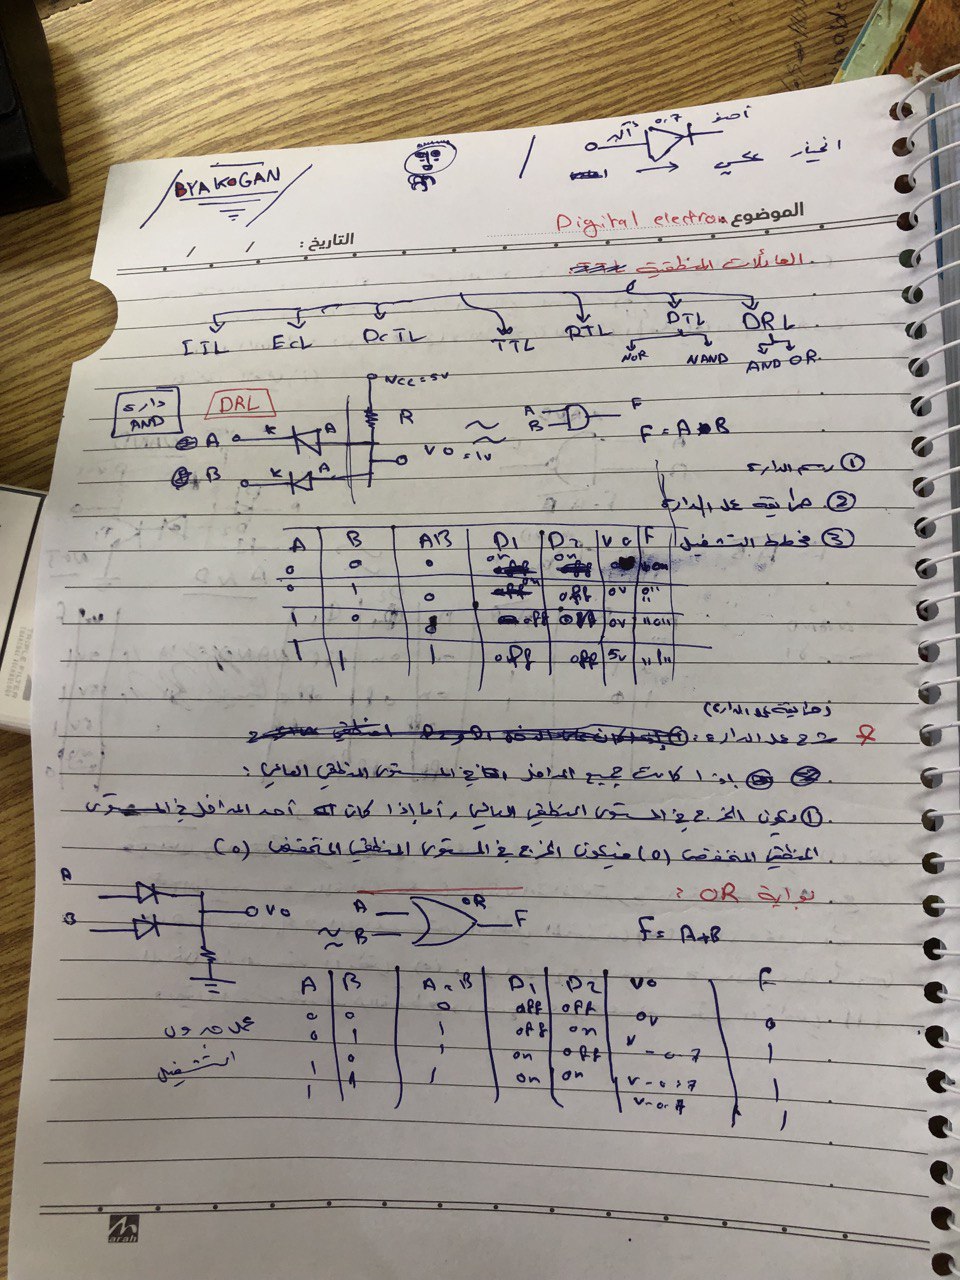 BYAKOGAN
0.7
انحياز عكسي
الموضوع Digital electron
التاريخ : / /
العائلات المنطقية
ITL EcL DcTL TTL RTL DTL DRL
NOR NAND AND OR
دارة AND
DRL
Vcc=5v
R
A K A
B K A
Vo=1v
≈
A B F
F = A • B
① رسم الدارة
② طريقة عمل الدارة
③ مخطط التشغيل
A B AB D1 D2 Vo F
0 0 0 on on 0
0 1 0 on off 0v "0"
1 0 off off 0v "0"
1 1 1 off off 5v "1"
شرح عمل الدارة :
إذا كانت جميع المداخل في المستوى المنطقي العالي :
① ويكون الخرج في المستوى المنطقي العالي , أما إذا كان أحد المداخل في المستوى
المنطقي المنخفض (0) فيكون الخرج في المستوى المنطقي المنخفض (0)
بوابة OR :
A
B
Vo
≈
A B OR F
F = A+B
A B A+B D1 D2 Vo F
0 0 0 off off 0v 0
0 1 1 off on v-0.7 1
1 0 1 on off v-0.7 1
1 1 1 on on v-0.7 1
التشغيل
arah